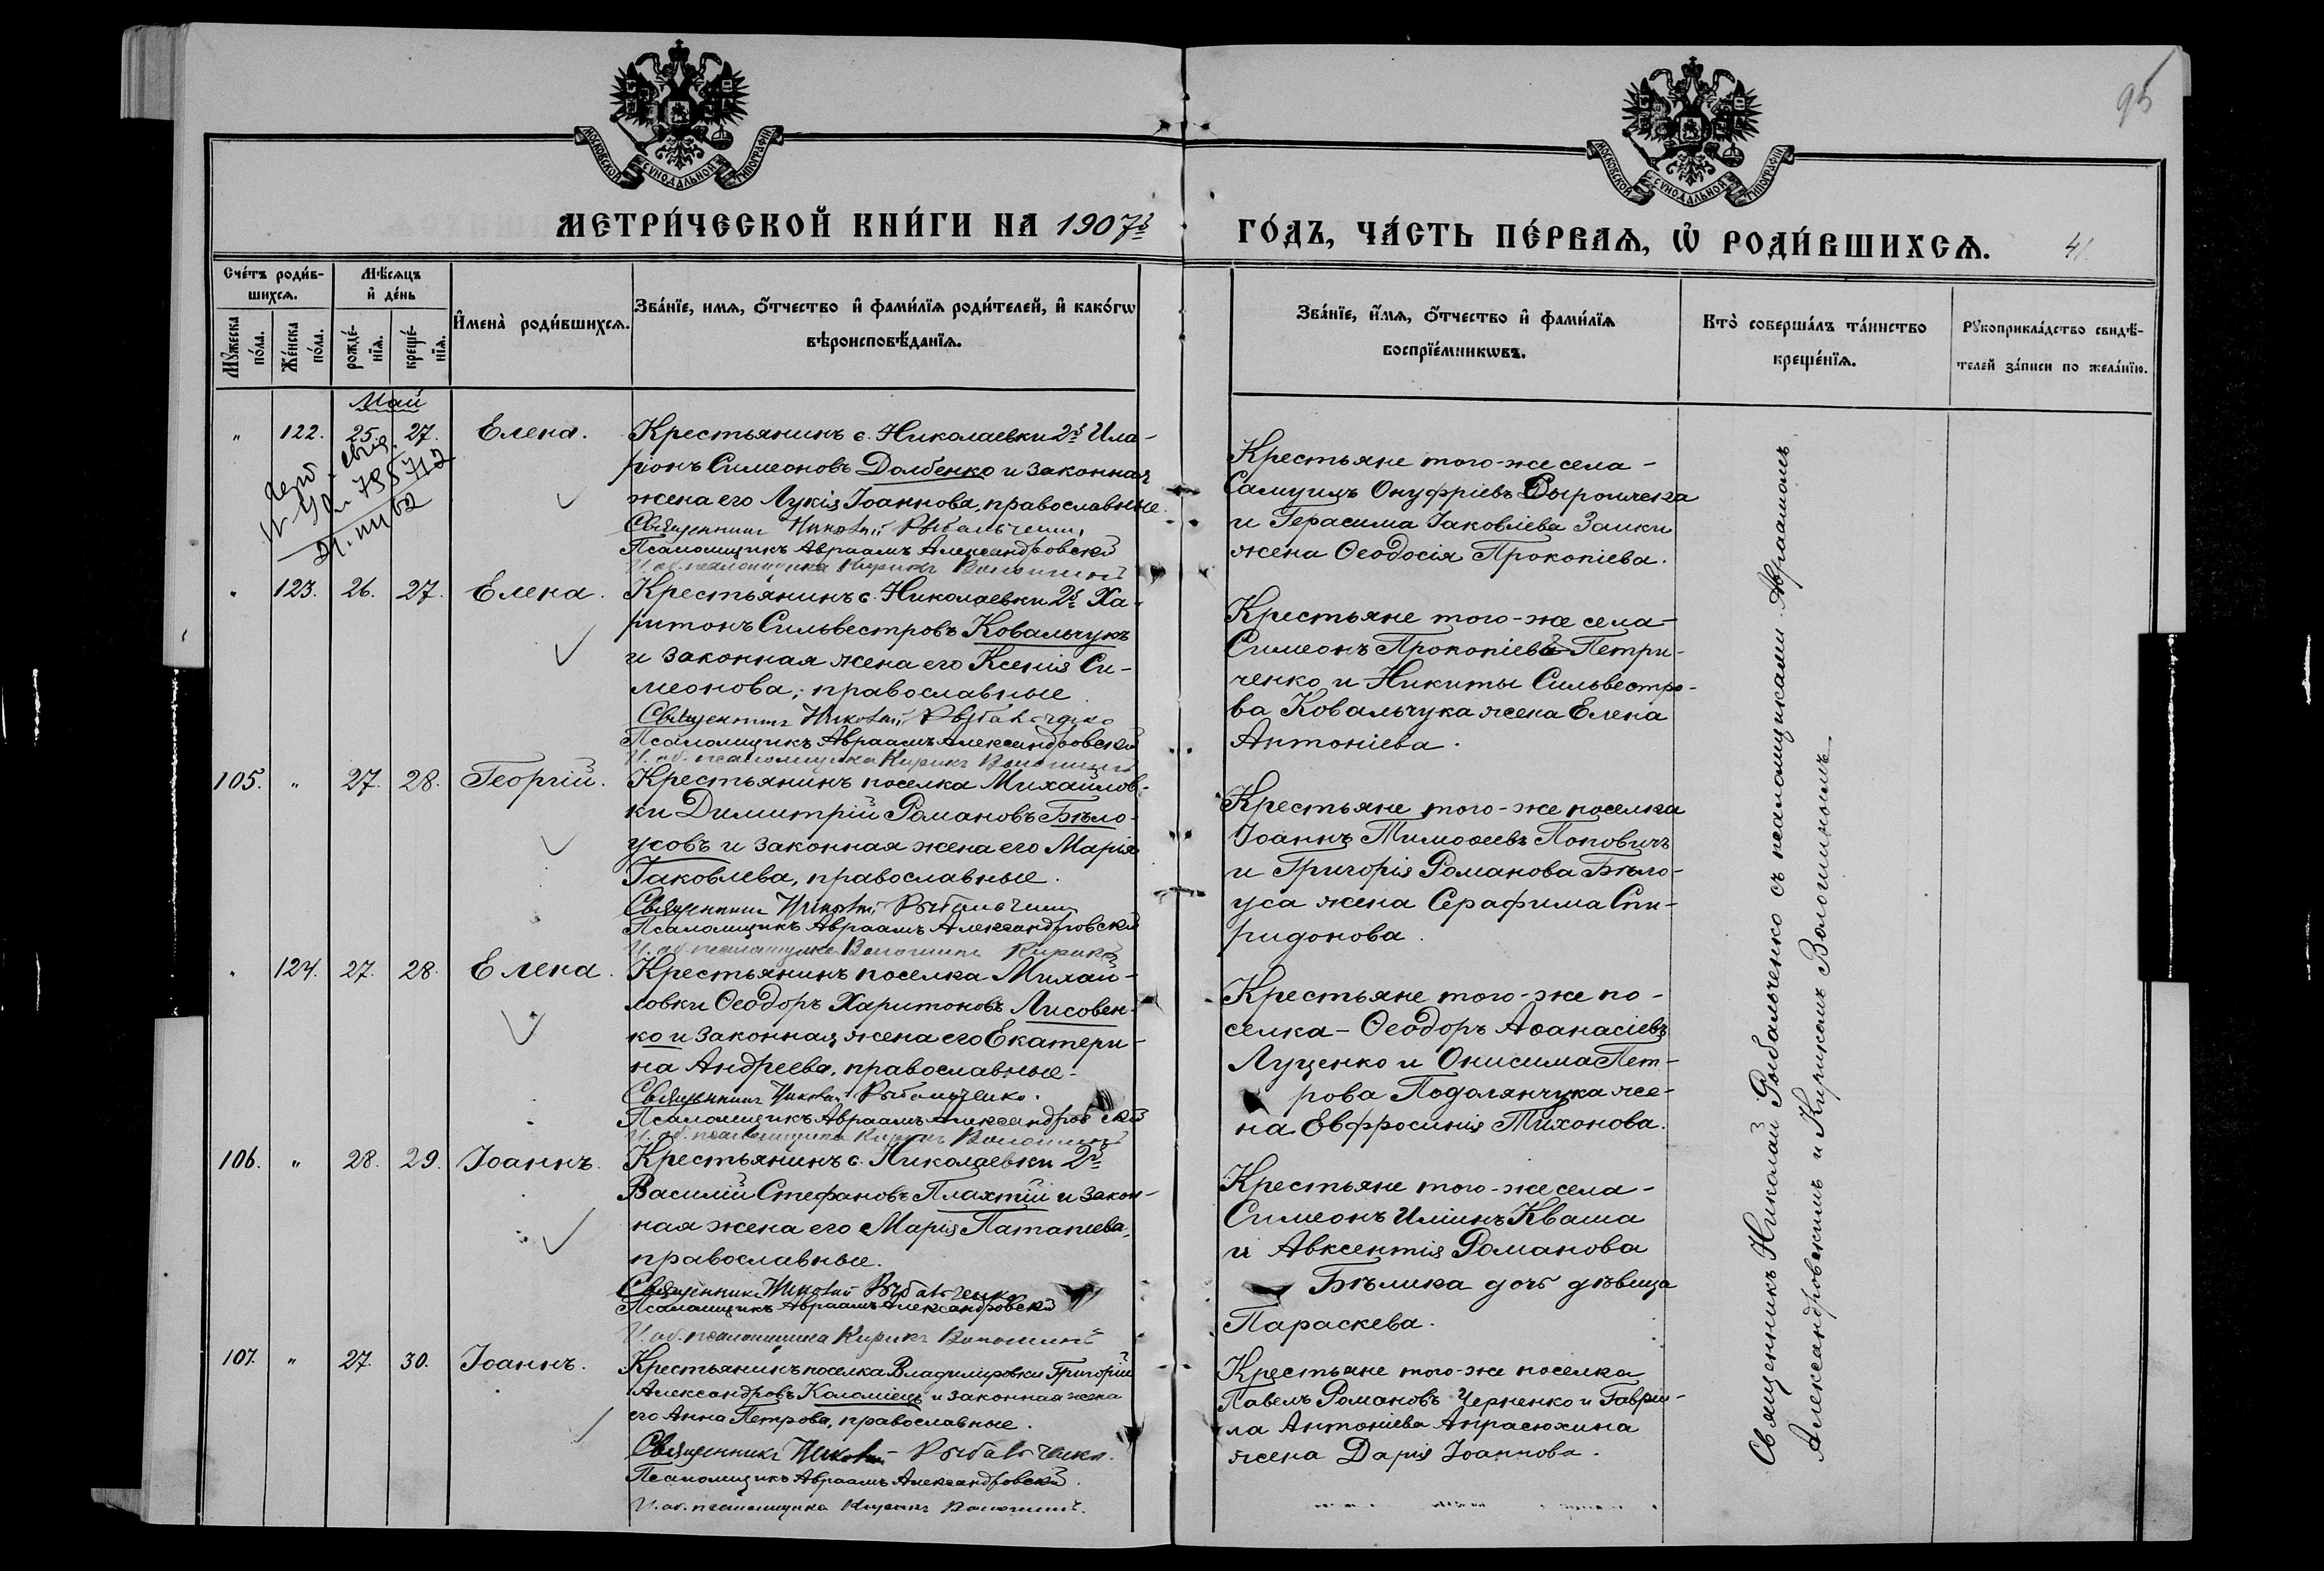 95
МОСКОВСКОЙ СѴНОДАЛЬНОЙ ТИПОГРАФІИ
МОСКОВСКОЙ СѴНОДАЛЬНОЙ ТИПОГРАФІИ
МЕТРИ́ЧЕСКОЙ КНИ́ГИ НА 1907й
ГО́ДЪ, ЧА́СТЬ ПЕ́РВАѦ, Ѽ РОДИ́ВШИХСѦ.
41.
Сче́тъ роди́в-
шихсѧ.
Мѣ́сѧцъ
и҆ де́нь
Мꙋ́жеска
по́ла.
Же́нска
по́ла.
рожде́-
нїѧ.
креще́-
нїѧ.
И҆мена̀ роди́вшихсѧ.
Зва́нїе, имѧ, ѻ҆́тчество и҆ фами́лїѧ роди́телей, и҆ како́гѡ
вѣроисповѣ́данїѧ.
Зва́нїе, и҆́мѧ, ѻ҆́тчество и҆ фами́лїѧ
воспрїе́мникѡвъ.
Кто̀ соверша́лъ та́инство
креще́нїѧ.
Рꙋкоприкла́дство свидѣ́-
телей за́писи по жела́нїю.
Май
" 122. 25. 27. Елена.
Крестьянинъ с. Николаевки 2й Ила-
рiонъ Симеоновъ Долбенко и законная
жена его Лукiя Iоаннова, православные.
Священникъ Николай Рыбальченко
Псаломщикъ Авраамъ Александровскiй
И. об. псаломщика Кирикъ Волошинъ
Крестьяне того-же села -
Самуилъ Онуфрiевъ
и Герасима Iаковлева Заики
жена Ѳеодосiя Прокопiева.
" 123. 26. 27. Елена.
Крестьянинъ с. Николаевки 2й Ха-
ритонъ Сильвестровъ Ковальчукъ
и законная жена его Ксенiя Си-
меонова, православные
Священникъ Николай Рыбальченко
Псаломщикъ Авраамъ Александровскiй
И. об. псаломщика Кирикъ Волошинъ
Крестьяне того-же села-
Симеонъ Прокопiевъ Петри-
ченко и Никиты Сильвестро-
ва Ковальчука жена Елена
Антонiева.
105. " 27. 28. Георгiй.
Крестьянинъ поселка Михайлов-
ки Димитрiй Романовъ Бѣло-
усовъ и законная жена его Марiя
Iаковлева, православные.
Священникъ Николай Рыбальченко
Псаломщикъ Авраамъ Александровскiй
И. об. псаломщика Волошинъ Кирикъ
Крестьяне того-же поселка
Iоаннъ Тимоѳеевъ Поповичъ
и Григорiя Романова Бѣло-
уса жена Серафима Спи-
ридонова.
" 124. 27. 28. Елена.
Крестьянинъ поселка Михай-
ловки Ѳеодоръ Харитоновъ Лисовен-
ко и законная жена его Екатери-
на Андреева, православные.
Священникъ Николай Рыбальченко.
Псаломщикъ Авраамъ Александровскiй
И. об. псаломщика Кирикъ Волошинъ
Крестьяне того-же по-
селка - Ѳеодоръ Аѳанасiевъ
Луценко и Онисима Пет-
рова Подолянчука же-
на Евфросинiя Тихонова.
106. " 28. 29. Iоаннъ.
Крестьянинъ с. Николаевки 2й
Василiй Стефановъ Плахтiй и закон-
ная жена его Марiя Патапiева,
православные.
Священникъ Николай Рыбальченко
Псаломщикъ Авраамъ Александровскiй
И. об. псаломщика Кирикъ Волошинъ
Крестьяне того-же села-
Симеонъ Илiинъ Кваша
и Авксентiя Романова
Бѣлика дочь дѣвица
Параскева.
107. " 27. 30. Iоаннъ.
Крестьянинъ поселка Владимiровки Григорiй
Александровъ Коломiецъ и законная жена
его Анна Петрова, православные.
Священникъ Николай Рыбальченко.
Псаломщикъ Авраамъ Александровскiй.
И. об. псаломщика Кирикъ Волошинъ.
Крестьяне того-же поселка
Павелъ Романовъ Черненко и Гаврiи-
ла Антонiева Апрасюхина
жена Дарiя Iоаннова.
Священникъ Николай Рыбальченко съ псаломщиками Авраамомъ
Александровскимъ и Кирикомъ Волошиномъ.